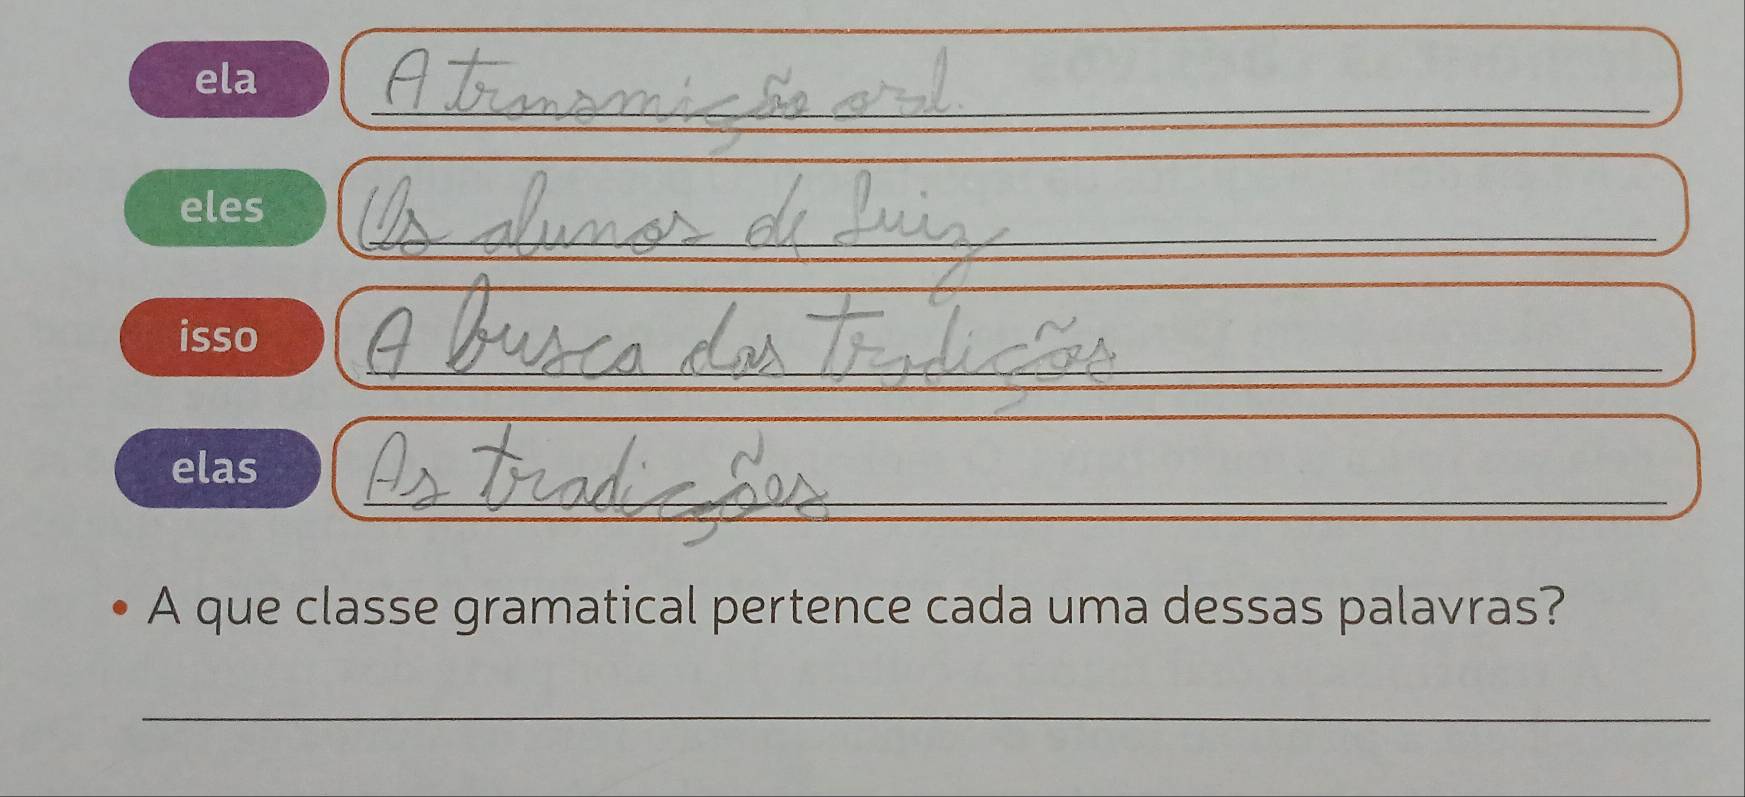 ela A transmição oral.
eles Os alunos de Luiz
isso A busca das tradições
elas As tradições
• A que classe gramatical pertence cada uma dessas palavras?